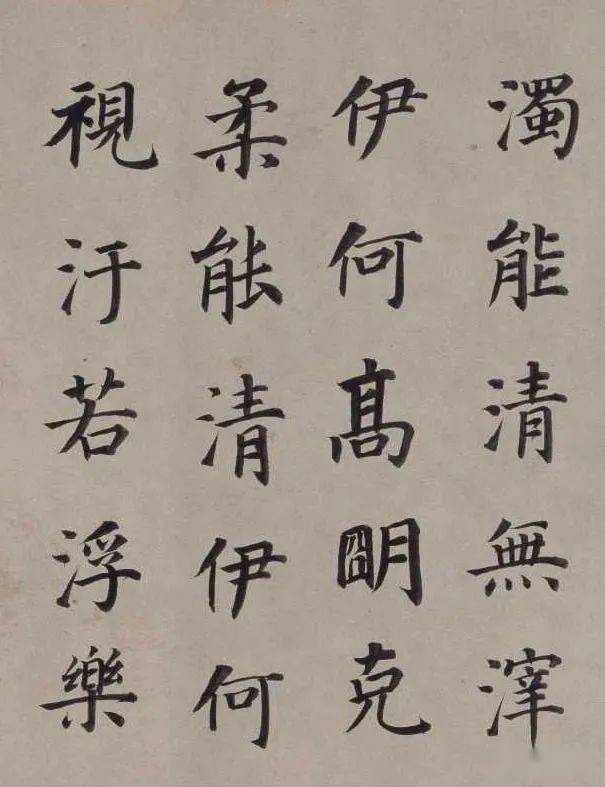 濁能清無滓
伊何高明克
柔能清伊何
視汙若浮樂